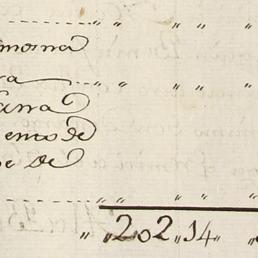 " "
mosna
ra " "
arra
ento de
e de
" "
" 202 " 14 "